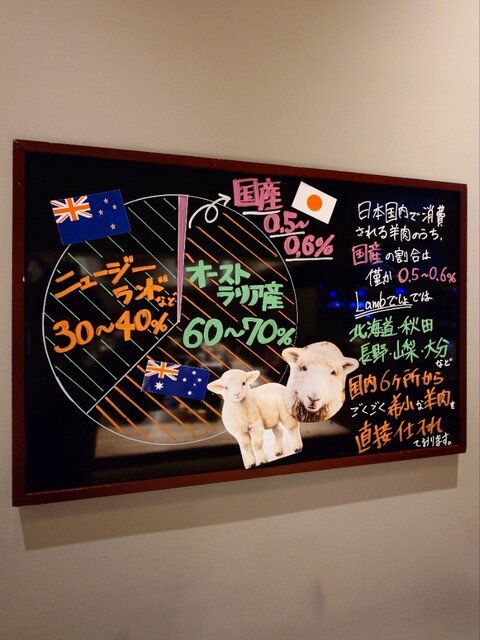 国産
0.5〜
0.6%
ニュージー
ランドなど
30〜40%
オースト
ラリア産
60〜70%
日本国内で消費
される羊肉のうち、
国産の割合は
僅か0.5〜0.6%
Lambでしょでは
北海道・秋田
長野・山梨・大分など
国内6ヶ所から
ごくごく希少な羊肉を
直接仕入れ
ております。